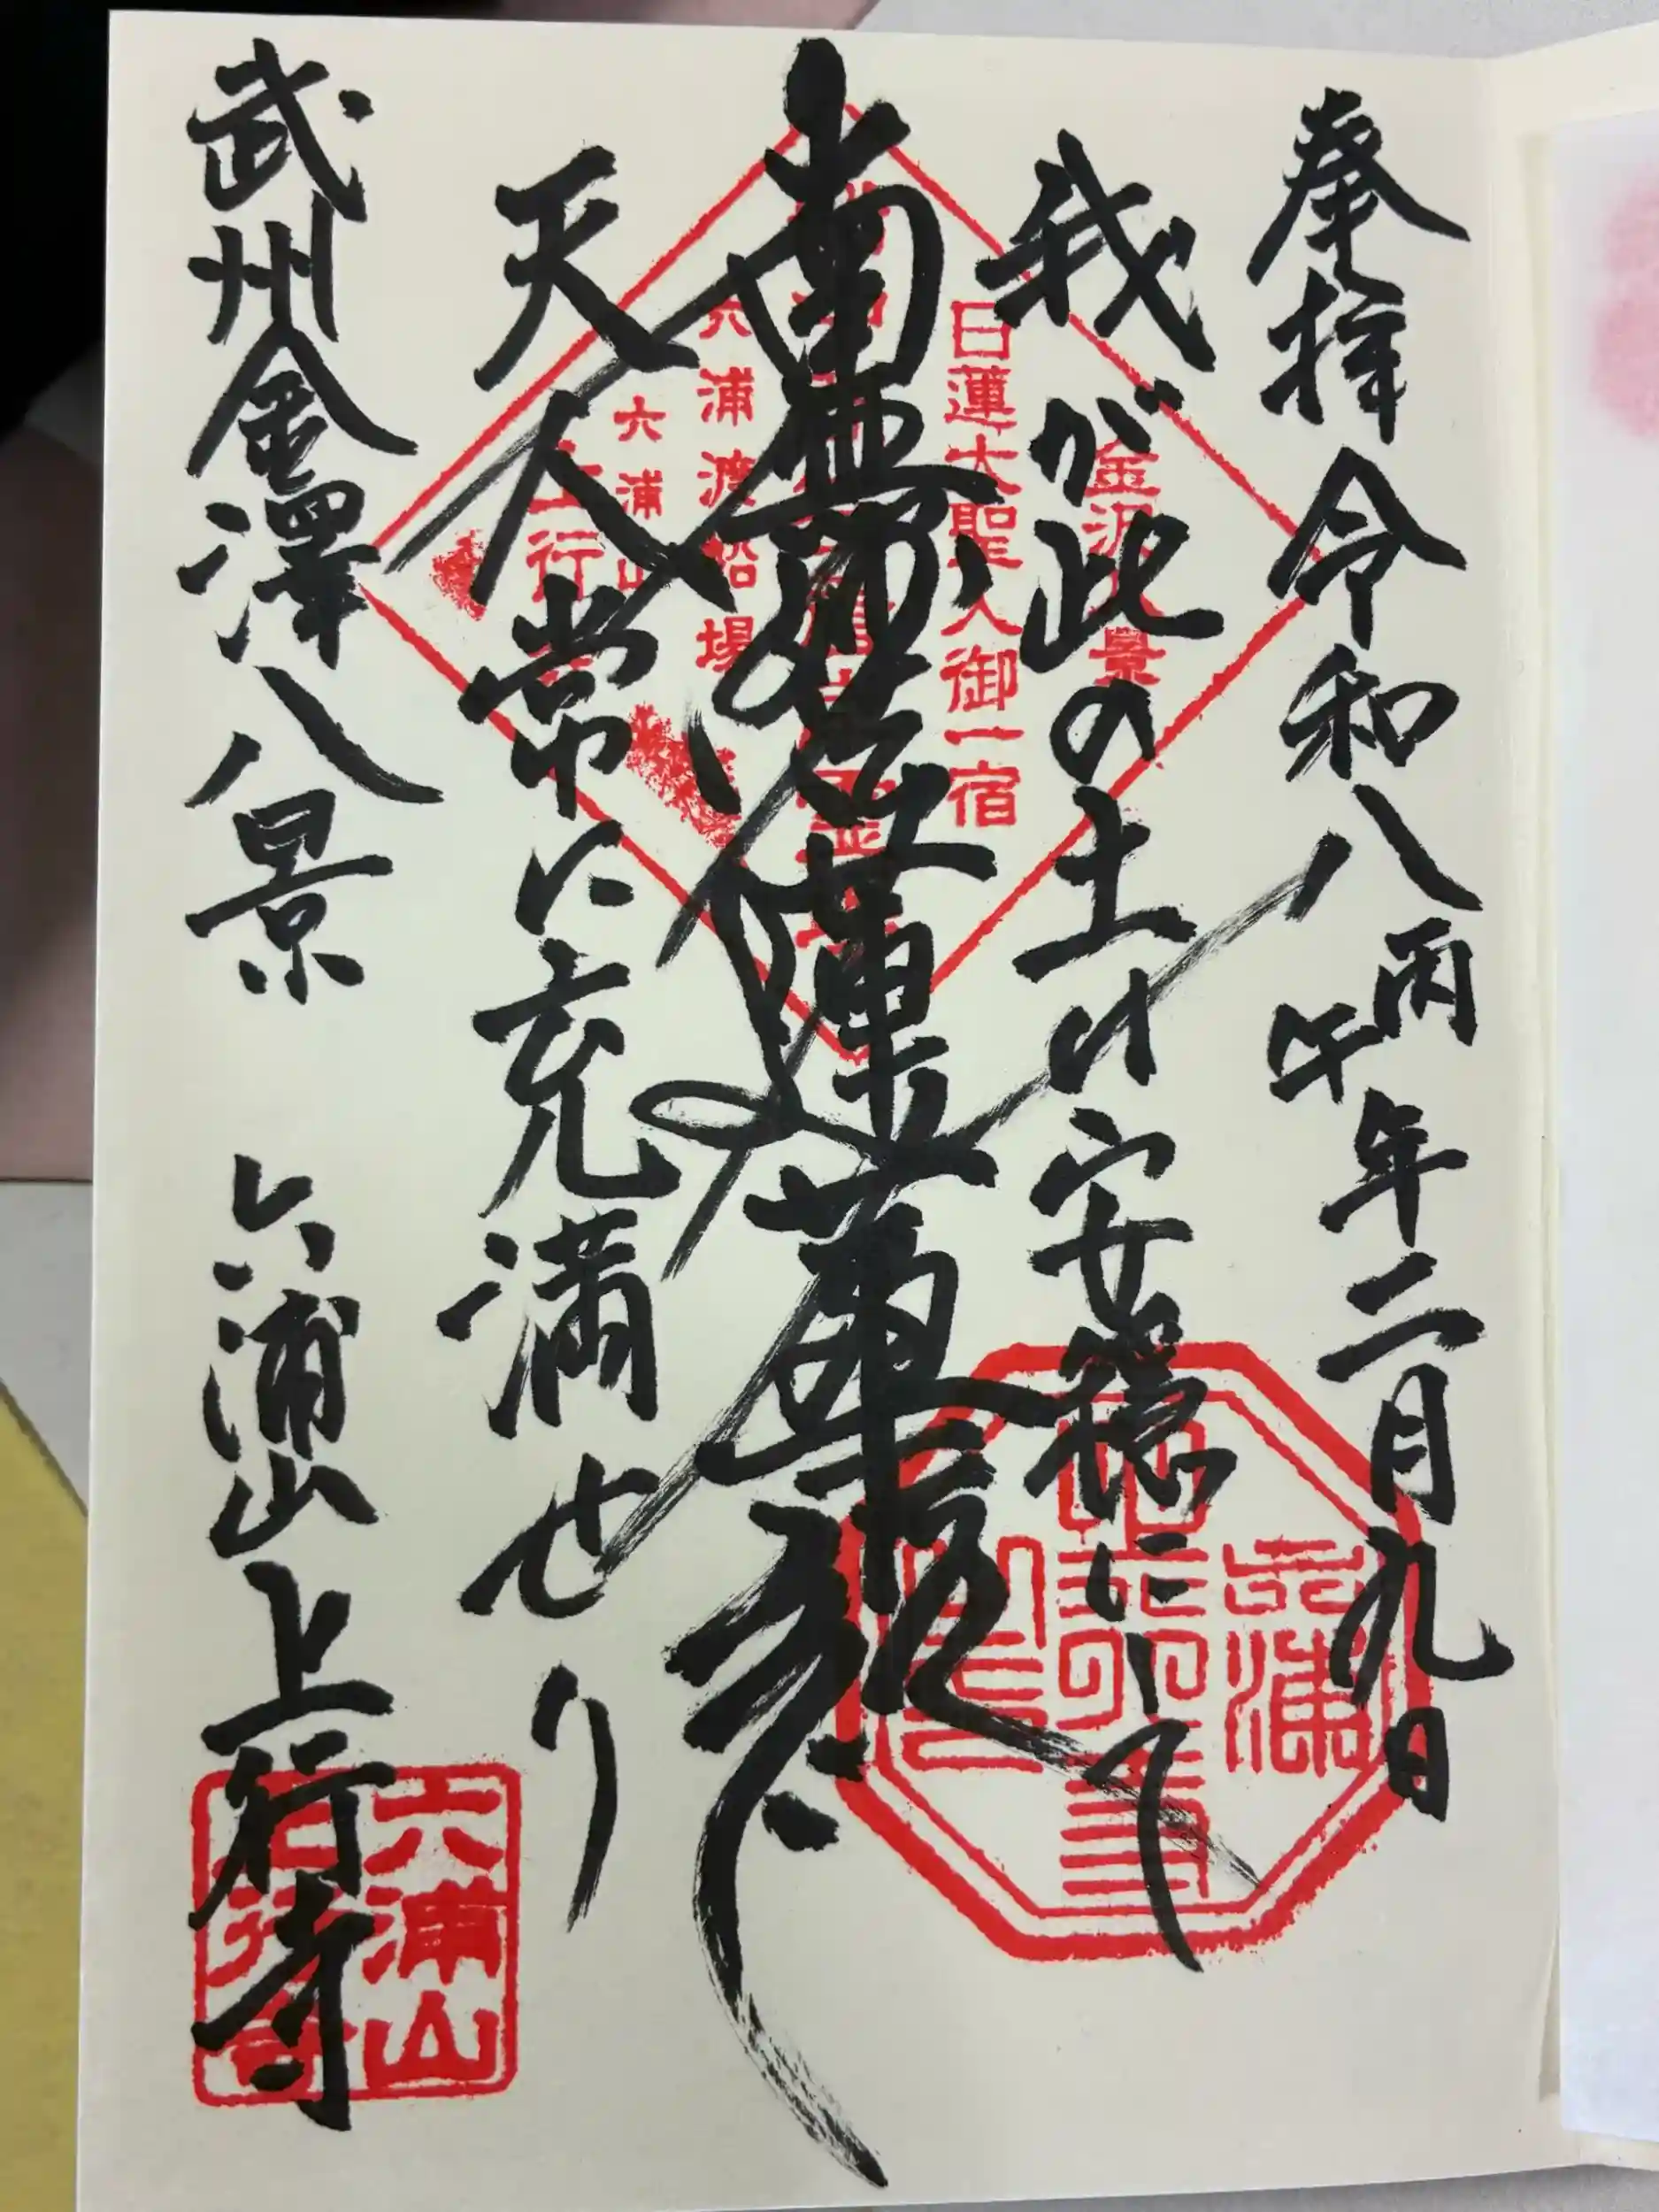 奉拝 令和八丙午年二月九日
我が此の土は安穏にして
南無妙法蓮華経
天人常に充満せり
武州金澤八景 六浦山 上行寺
日蓮大聖人御一宿
六浦
六浦山
上行寺